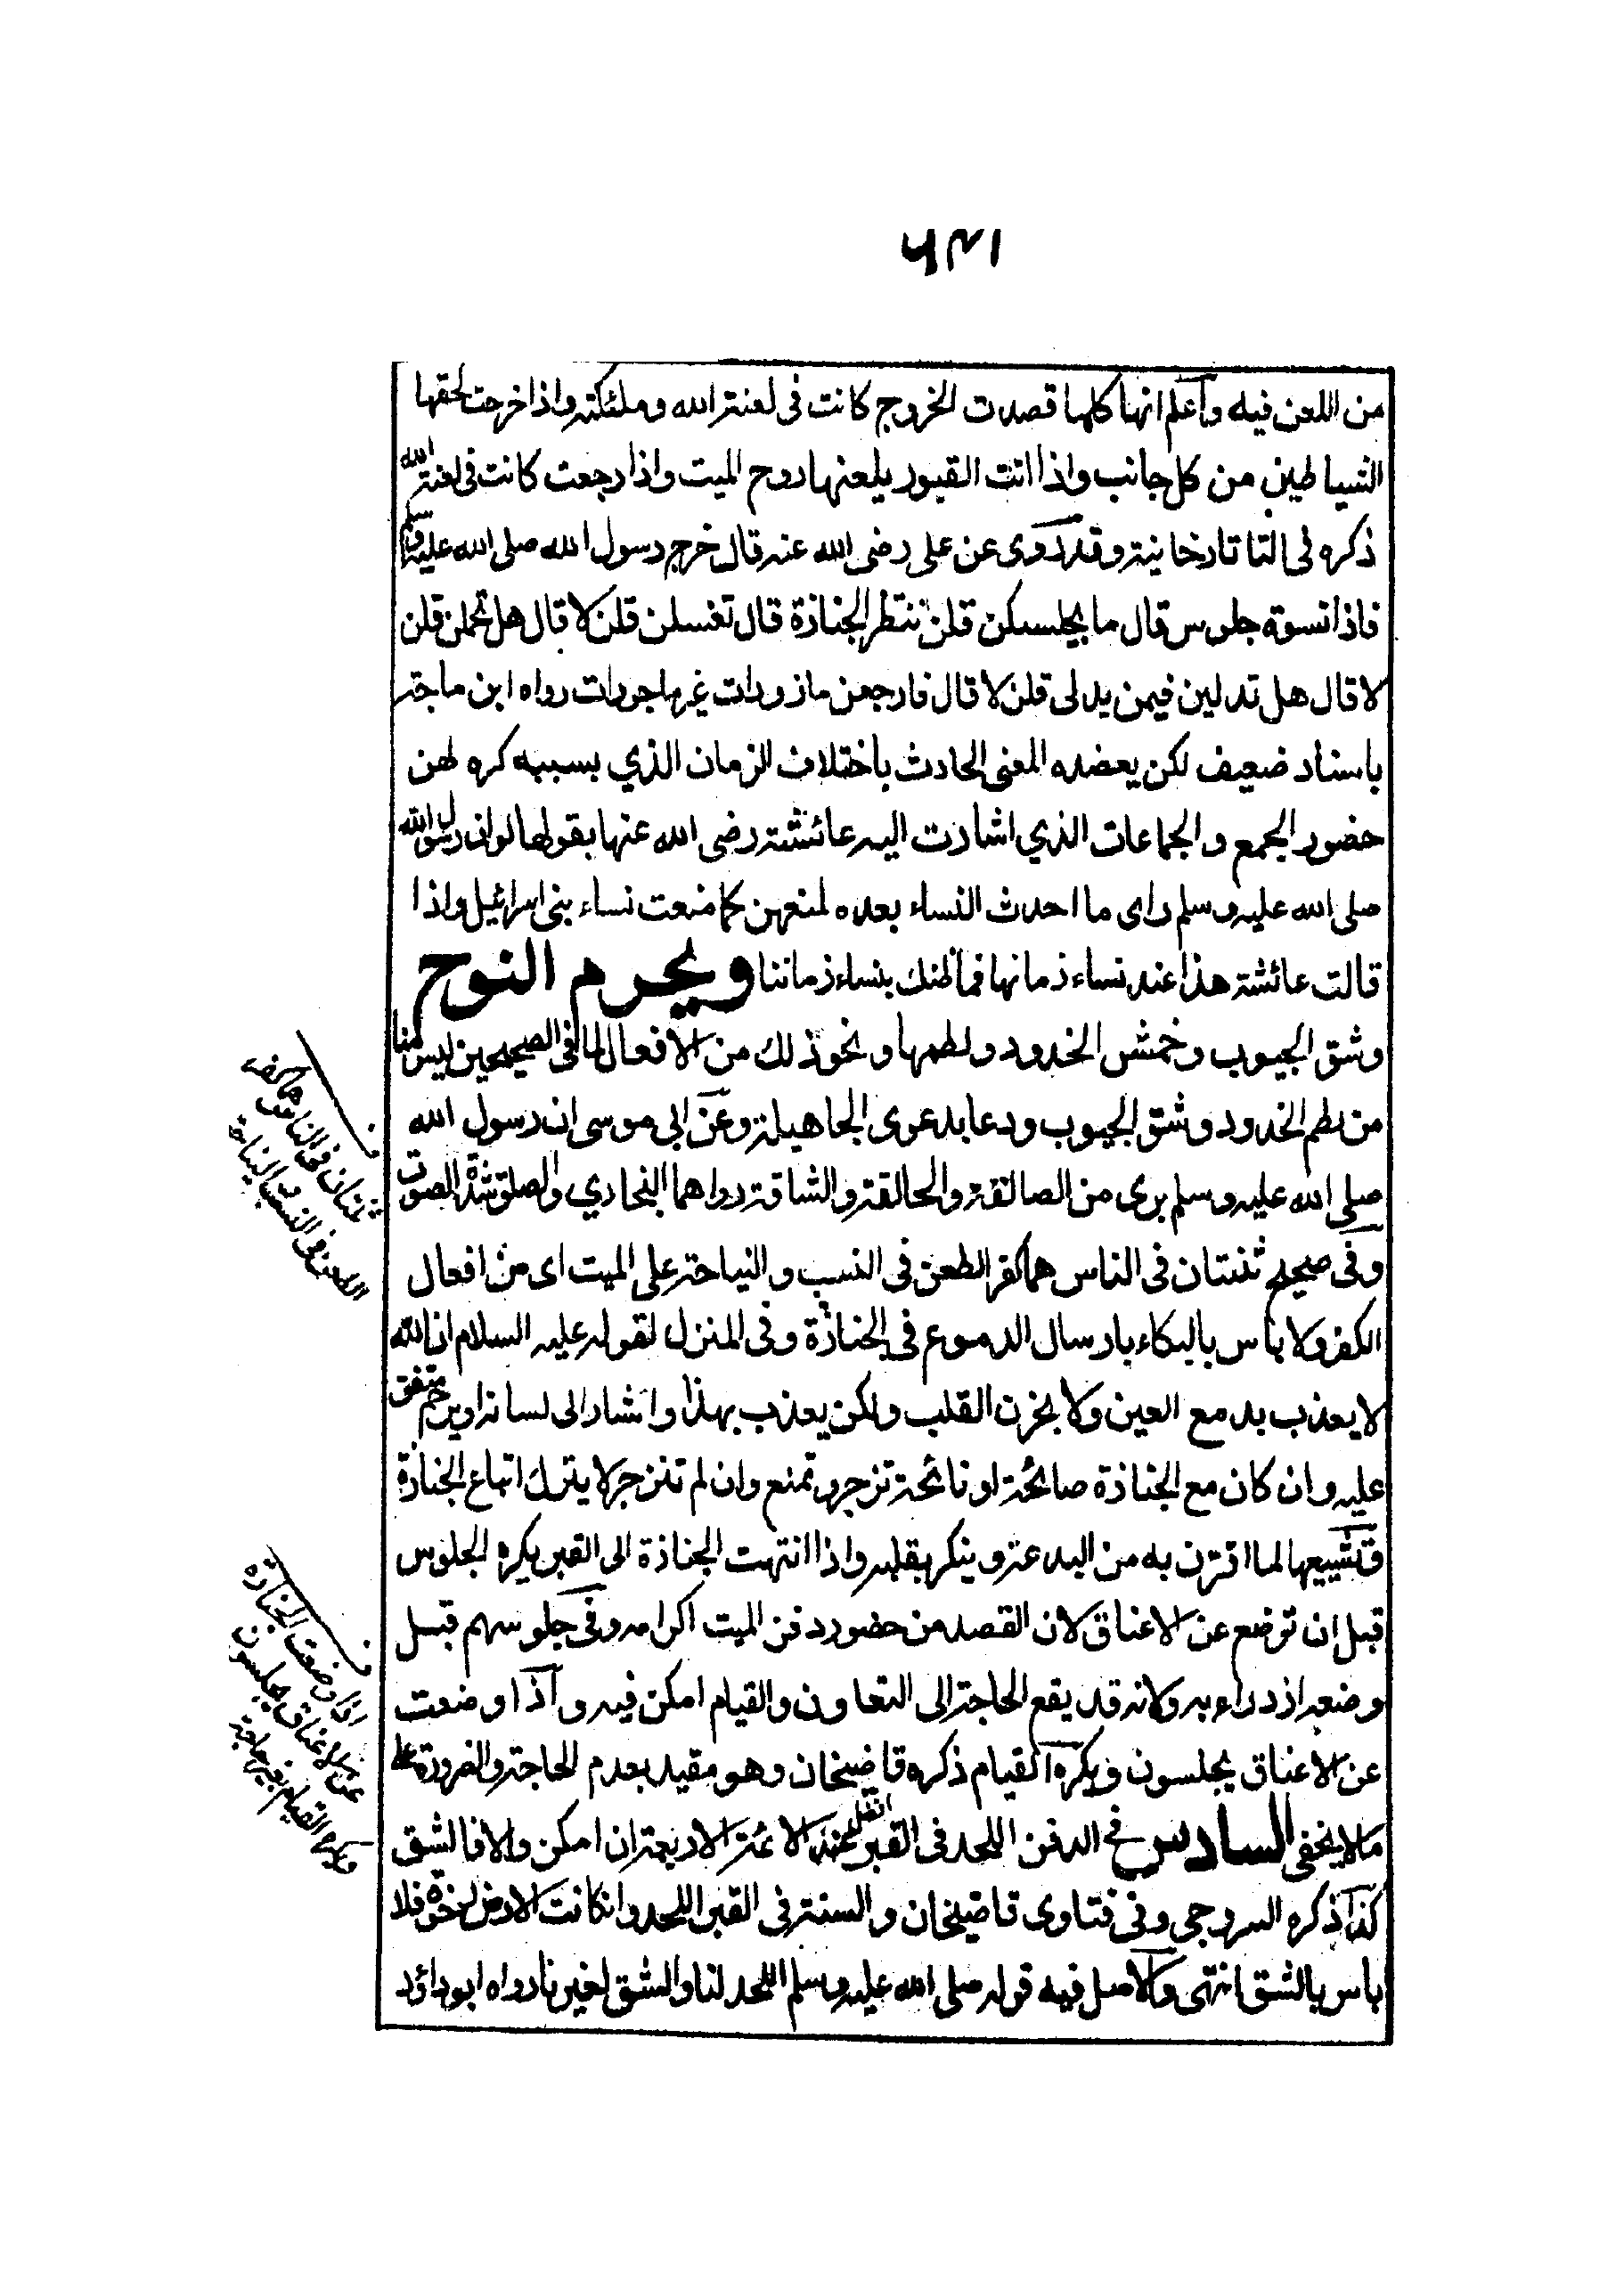 من اللعن فيه واعلم انها كلما قصدت الخروج كانت في لعنة الله وملئكته واذا خرجت لحقها
الشياطين من كل جانب واذا اتت القبور يلعنها روح الميت واذا رجعت كانت في لعنة الله
ذكره في التاتارخانية وقد روى عن على رضى الله عنه قال خرج رسول الله صلى الله عليه وسلم
فاذا نسوة جلوس قال ما يجلسكن قلن ننتظر الجنازة قال تغسلن قلن لا قال هل تحملن قلن
لا قال هل تدلين فيمن يدلى قلن لا قال فارجعن مازورات غير ماجورات رواه ابن ماجة
باسناد ضعيف لكن يعضده المعنى الحادث باختلاف الزمان الذي بسببه كره لهن
حضور الجمع والجماعات الذي اشارت اليه عائشة رضى الله عنها بقولها لو ان رسول الله
صلى الله عليه وسلم راى ما احدث النساء بعده لمنعهن كما منعت نساء بنى اسرائيل واذا
قالت عائشة هذا عند نساء زمانها فما ظنك بنساء زماننا ويحرم النوح
وشق الجيوب وخمش الخدود ولطمها ونحو ذلك من الافعال لما في الصحيحين ليس منا
من لطم الخدود وشق الجيوب ودعا بدعوى الجاهيلة وعن ابي موسى ان رسول الله
صلى الله عليه وسلم برى من الصالقة والحالقة والشاقة رواهما البخاري والصلق شدة الصوت
وفى صحيح ثنتان فى الناس هما كفر الطعن فى النسب والنياحة على الميت اى من افعال
الكفر ولا باس بالبكاء بارسال الدموع فى الجنازة وفى المنزل لقوله عليه السلام ان الله
لا يعذب بدمع العين ولا بحزن القلب ولكن يعذب بهذا واشار الى لسانه او يرحم متفق
عليه وان كان مع الجنازة صائحة او نائحة تزجر وتمنع وان لم تنزجر لا يترك اتباع الجنازة
وتشييعها لما اقترن به من البدعة وينكر بقلبه واذا انتهت الجنازة الى القبر يكره الجلوس
قبل ان توضع عن الاعناق لان القصد من حضور دفن الميت اكرامه وفى جلوسهم قبل
وضعه ازدراء به ولانه قد يقع الحاجة الى التعاون والقيام امكن فيه واذا وضعت
عن الاعناق يجلسون ويكره القيام ذكره قاضيخان وهو مقيد بعدم الحاجة والضرورة على
ما لا يخفى السادس في الدفن اللحد فى القبر افضل عند الائمة الاربعة ان امكن والا فالشق
كذا ذكره السروجي وفى فتاوى قاضيخان والسنة فى القبر اللحد وان كانت الارض رخوة فلا
باس بالشق انتهى والاصل فيه قوله صلى الله عليه وسلم اللحد لنا والشق لغيرنا رواه ابو داؤد
ثنتان فى الناس هما كفر
الطعن فى النسب والنياحة
اذا وضعت الجنازة
عن الاعناق يجلسون
ويكره القيام بغير حاجة